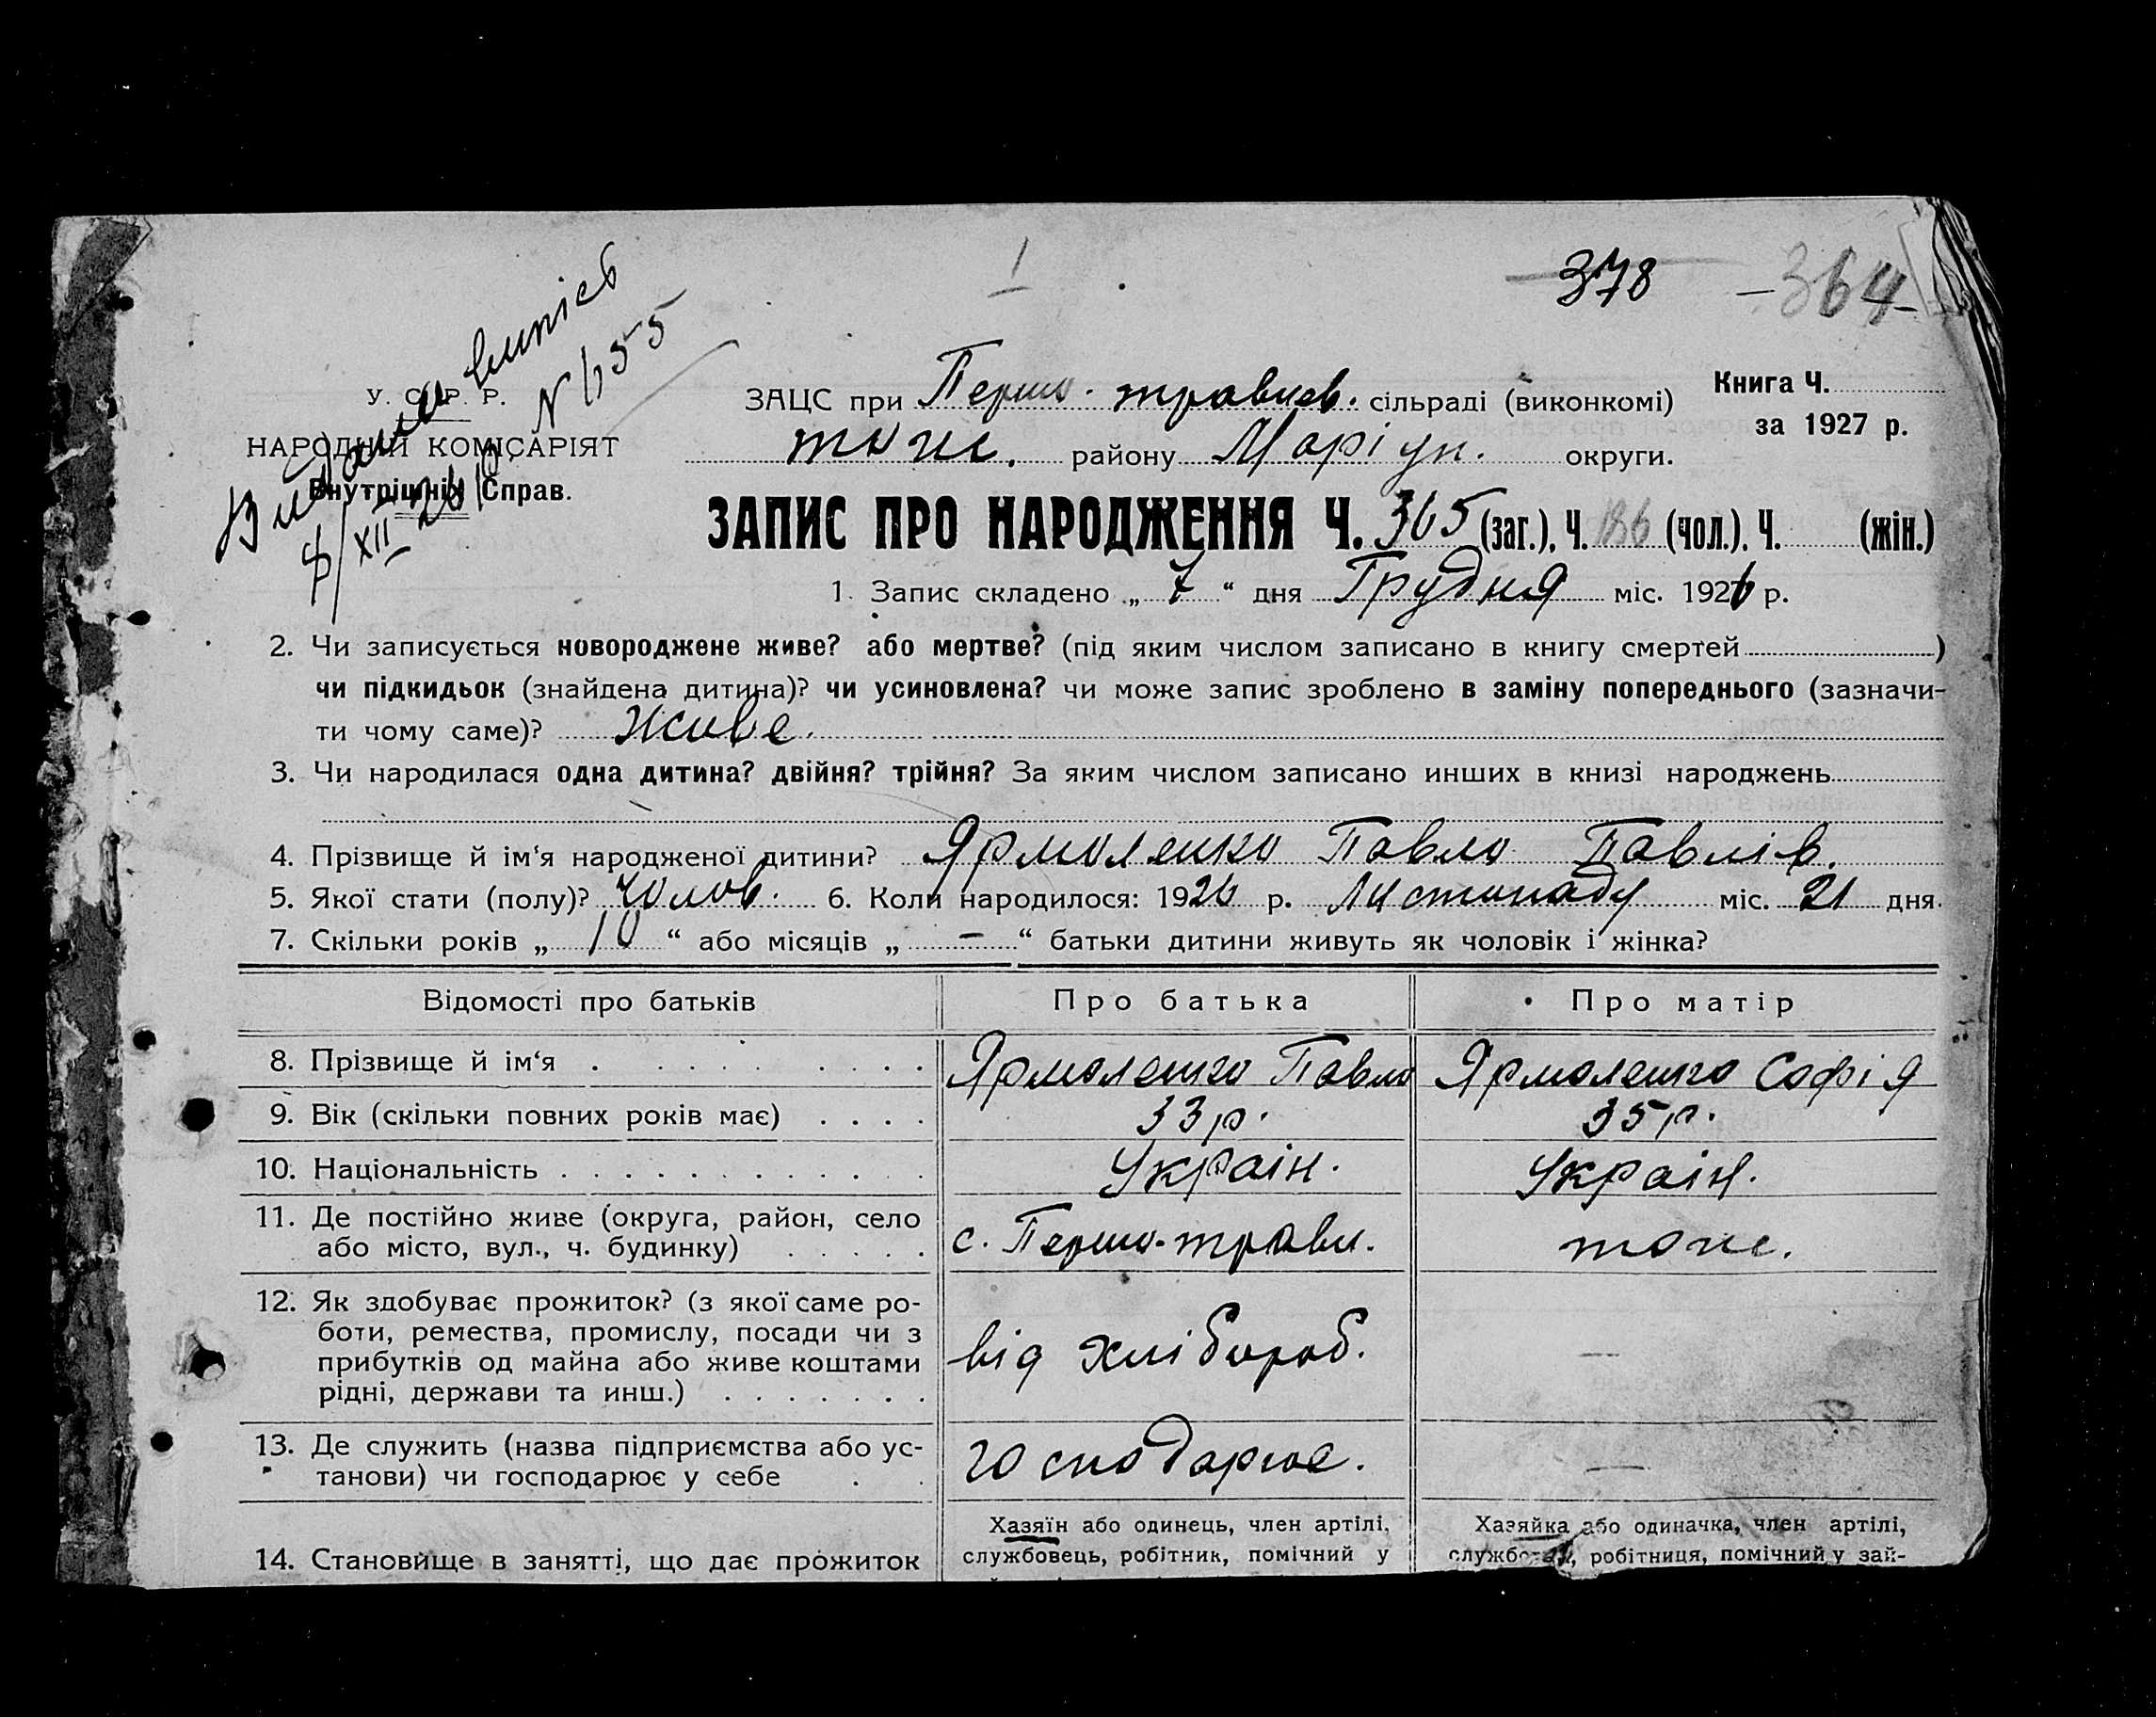 378 -364-
Видано випісь
N 655
У. С. Р. Р.
НАРОДНІЙ КОМІСАРІЯТ
Внутрішніх Справ.
ЗАЦС при Першо-травнев. сільраді (виконкомі)
тоже. району Маріуп. округи.
Книга Ч.
за 1927 р.
ЗАПИС ПРО НАРОДЖЕННЯ Ч. 365 (заг.), Ч. 186 (чол.), Ч. (жін.)
1. Запис складено „ 7 “ дня Грудня міс. 1926 р.
2. Чи записується новороджене живе? або мертве? (під яким числом записано в книгу смертей )
чи підкидьок (знайдена дитина)? чи усиновлена? чи може запис зроблено в заміну попереднього (зазначи-
ти чому саме)? Живе.
3. Чи народилася одна дитина? двійня? трійня? За яким числом записано инших в книзі народжень
4. Прізвище й ім‘я народженої дитини? Ярмоленко Павло Павлів.
5. Якої стати (полу)? Чолов. 6. Коли народилося: 1926 р. Листопаду міс. 21 дня.
7. Скільки років „ 10 “ або місяців „ - “ батьки дитини живуть як чоловік і жінка?
Відомості про батьків Про батька Про матір
8. Прізвище й ім‘я Ярмоленко Павло Ярмоленко Софія
9. Вік (скільки повних років має) 33 р. 35 р.
10. Національність Україн. Україн.
11. Де постійно живе (округа, район, село
або місто, вул., ч. будинку) с. Першо-травн. тоже.
12. Як здобуває прожиток? (з якої саме ро-
боти, ремества, промислу, посади чи з
прибутків од майна або живе коштами
рідні, держави та инш.) від хлібороб. —
13. Де служить (назва підприємства або ус-
танови) чи господарює у себе господарює. —
14. Становище в занятті, що дає прожиток
Хазяїн або одинець, член артілі,
службовець, робітник, помічний у
Хазяйка або одиначка, член артілі,
робітниця, помічний у зай-